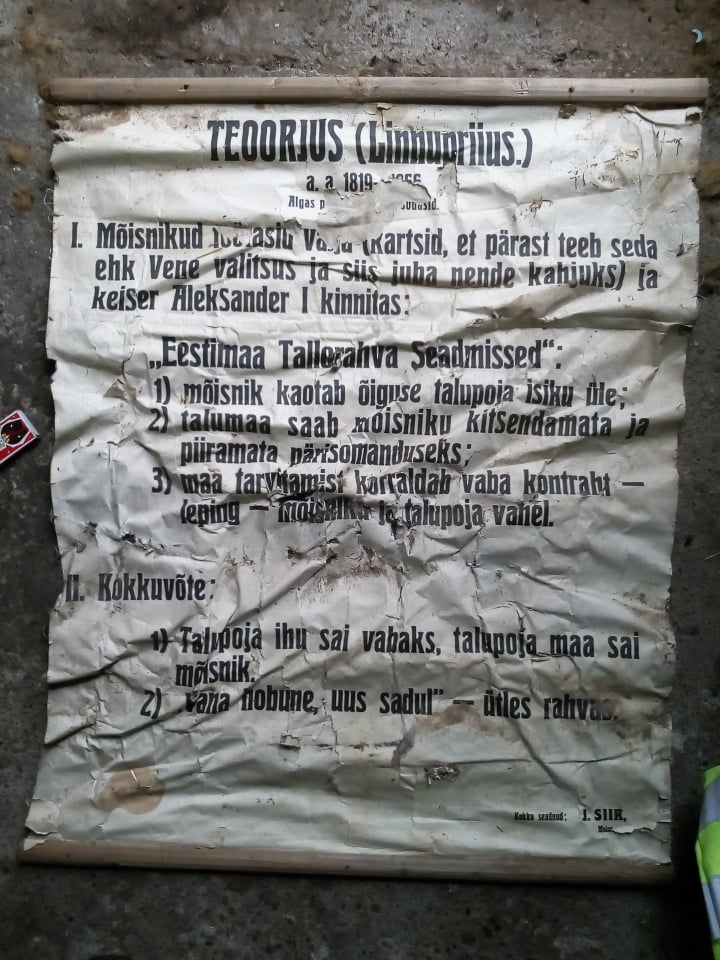 TEOORJUS (Linnupriius.)
a. a. 1819-
Algas
I. Mõisnikud (kartsid, et pärast teeb seda
ehk Vene valitsus ja siis juba nende kahjuks) ja
keiser Aleksander I kinnitas:
„Eestimaa Tallorahva Seadmissed“:
1) mõisnik kaotab õiguse talupoja isiku üle;
2) talumaa saab mõisniku kitsendamata ja
piiramata pärisomanduseks;
3) maa tarvitamist korraldab vaba kontraht —
leping — mõisniku ja talupoja vahel.
II. Kokkuvõte:
1) Talupoja ihu sai vabaks, talupoja maa sai
mõisnik.
2) vana hobune, uus sadul" — ütles rahvas.
Kokku seadnud: J. SIIR,